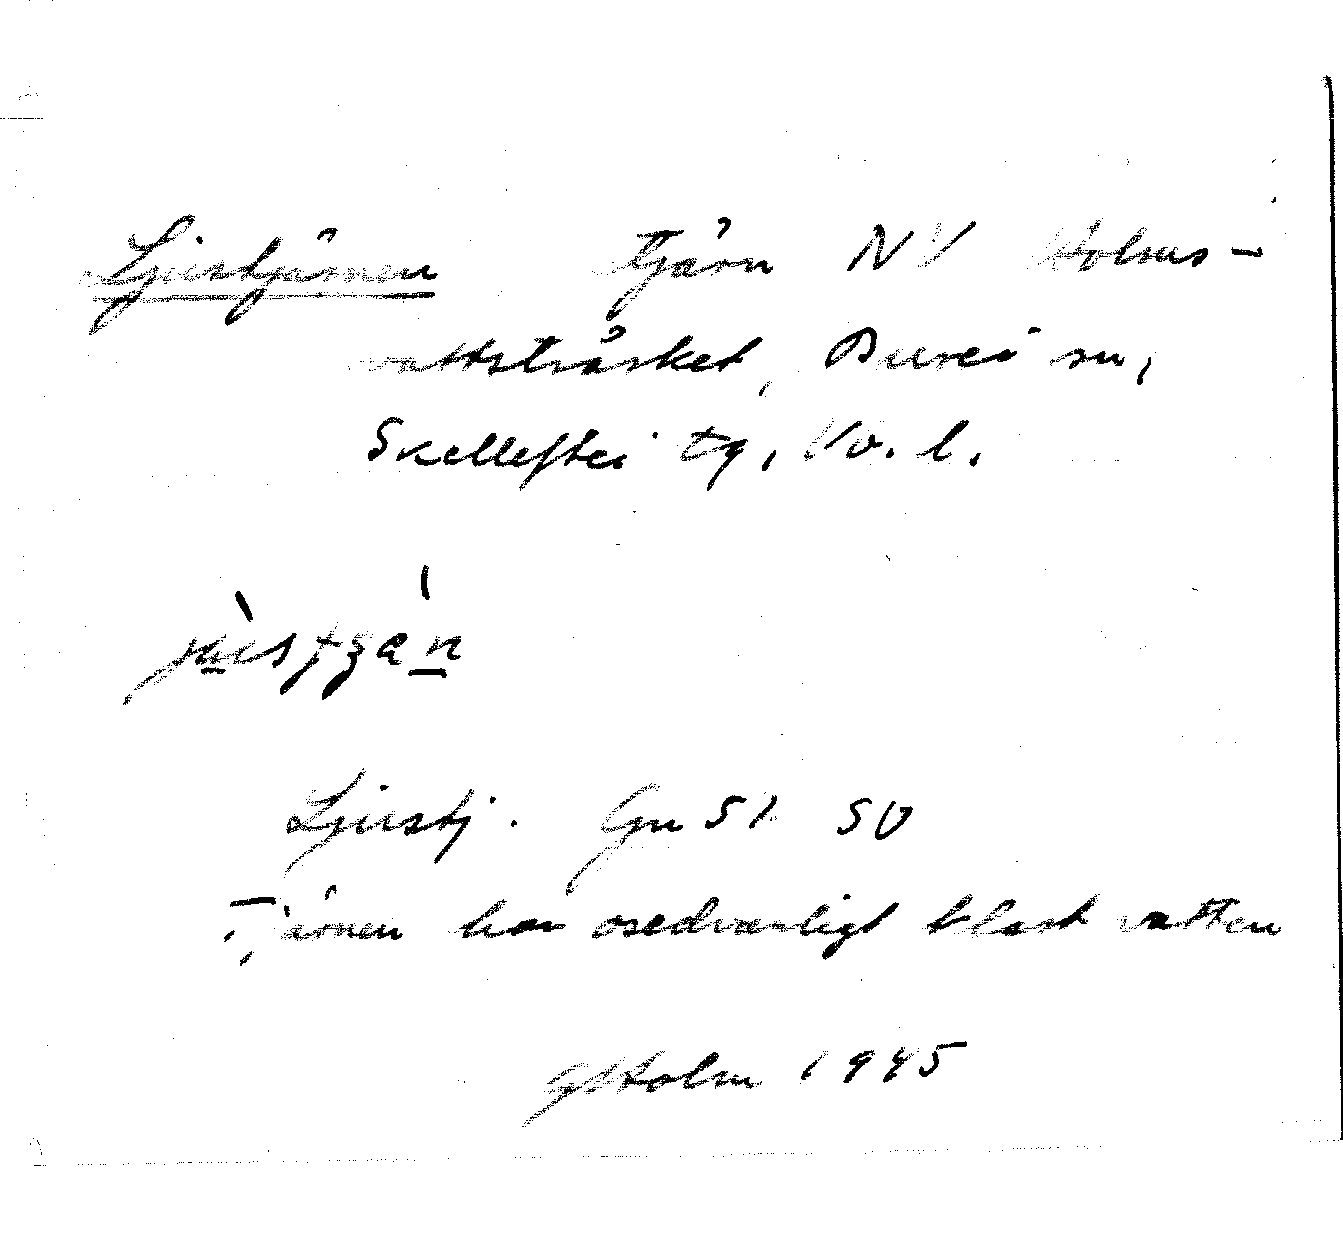 Ljustjärnen tjärn NV Holms-
vattsträsket, Bureå sn,
Skellefteå tg, Vb. l.
Ljustj. Gn 51 SV
Tjärnen har osedvanligt klart vatten
GHolm 1945